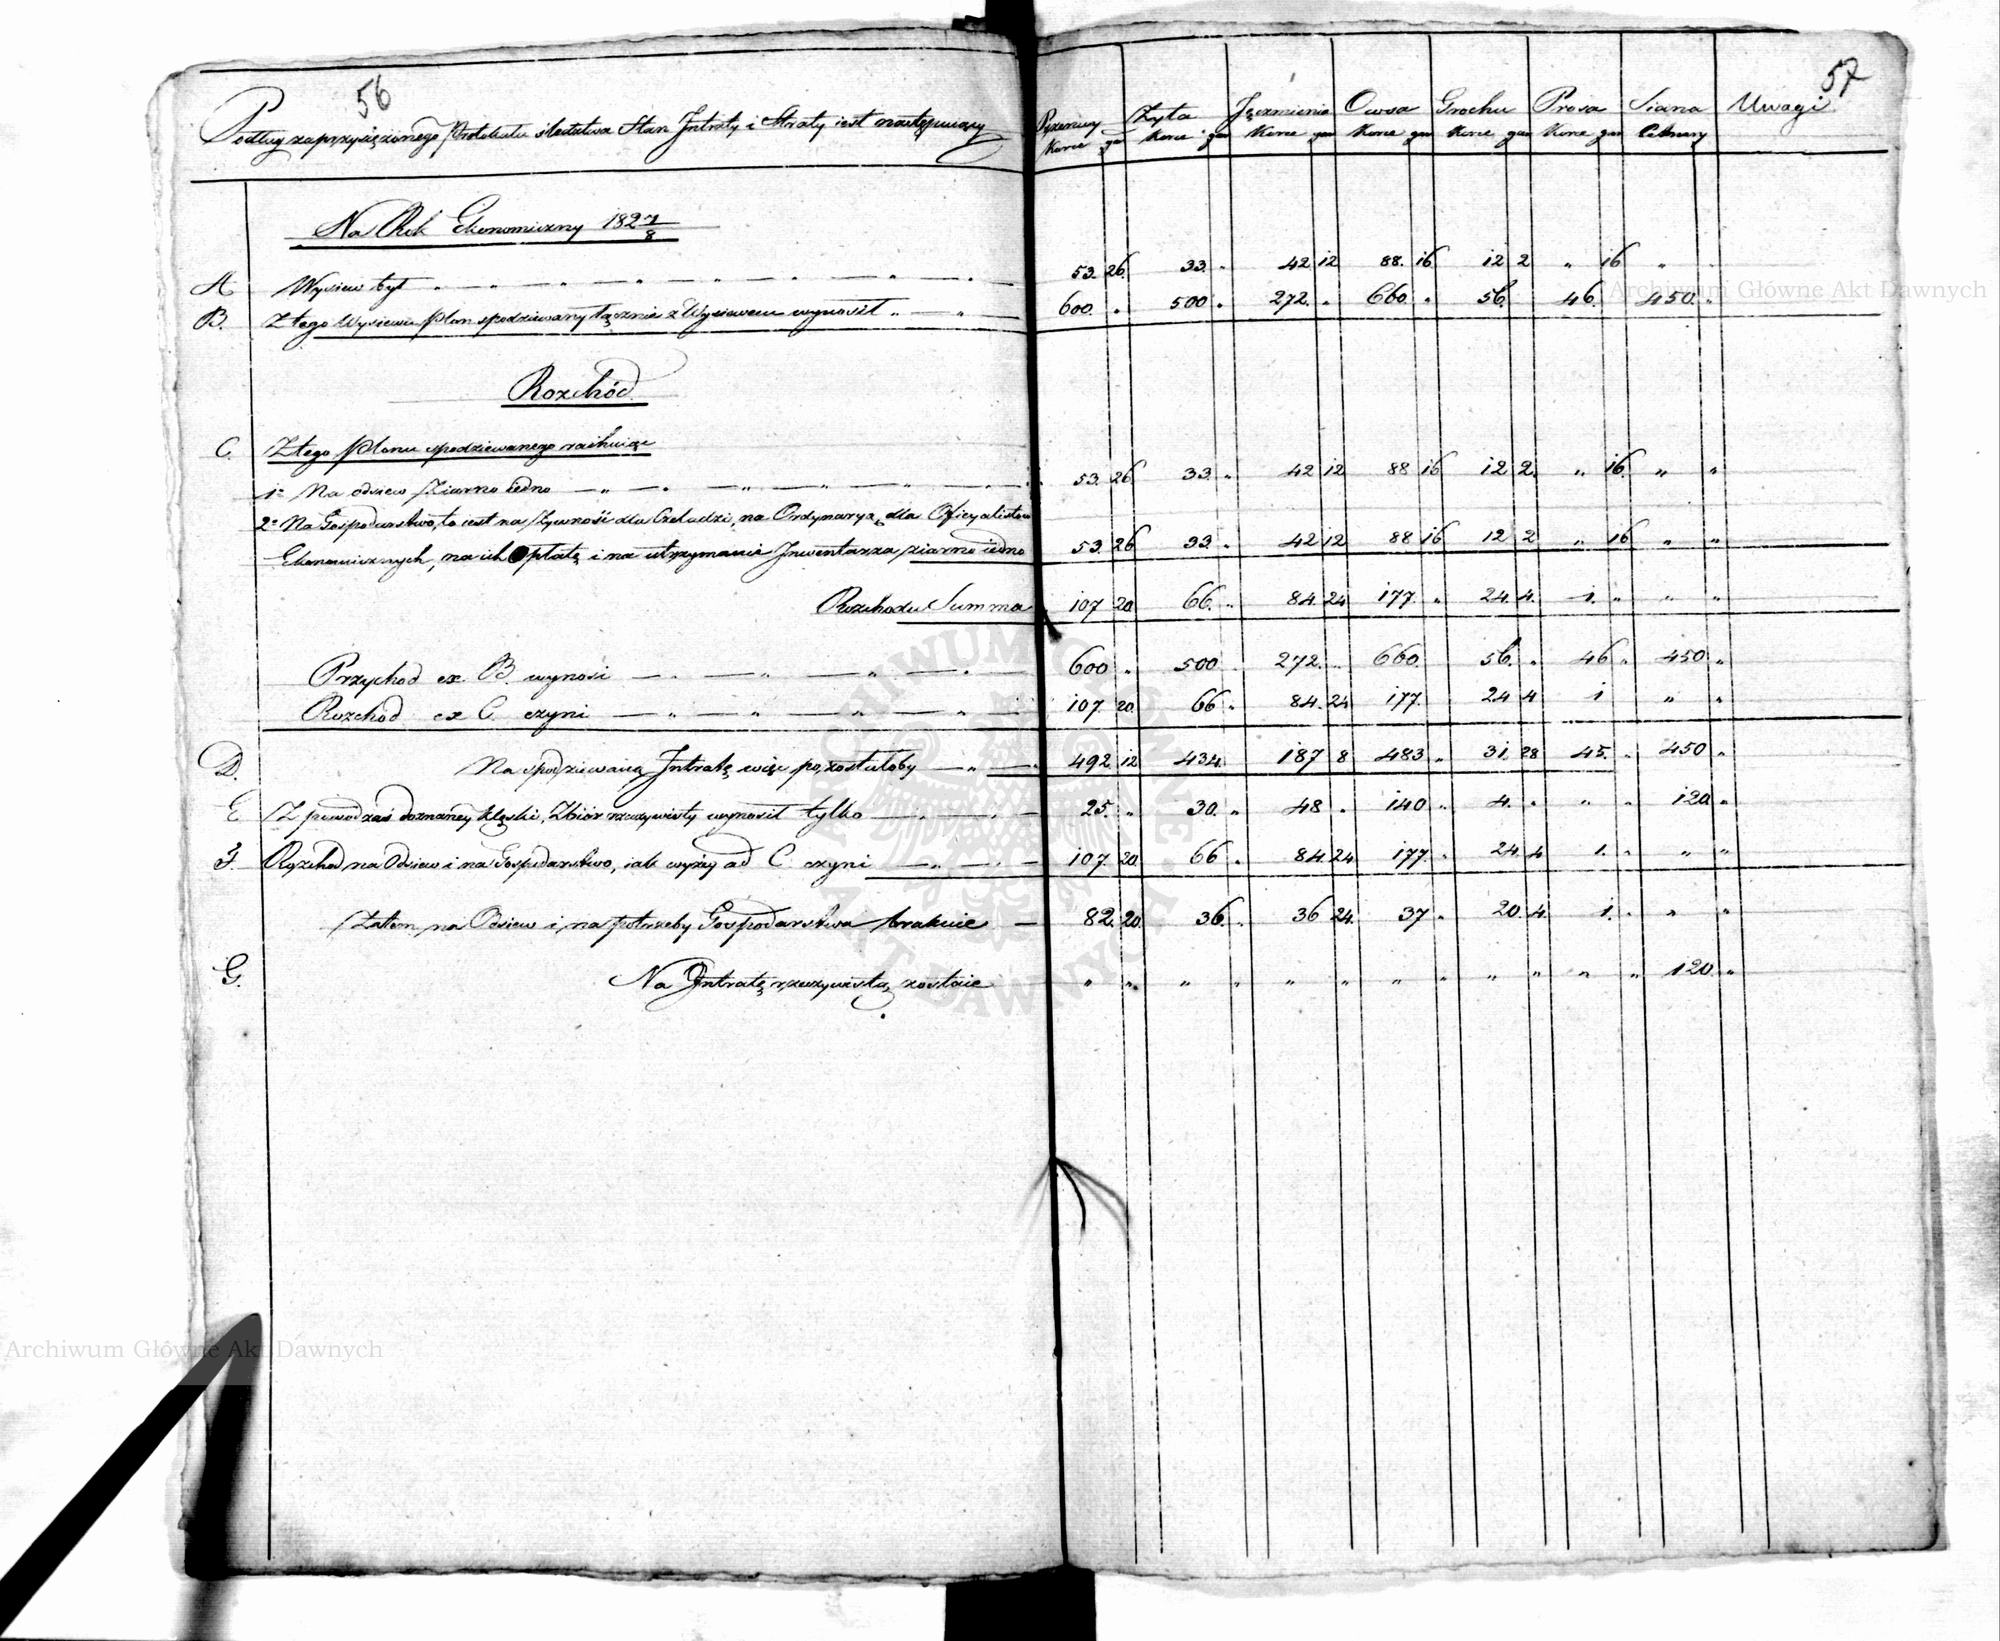 56
57
Podług zaprzysiężonego Protokułu śledztwa Stan Intraty i Straty iest następuiący
Pszenicy Żyta Jęczmienia Owsa Grochu Prosa Siana Uwagi
Korce gar Korce gar Korce gar Korce gar Korce gar Korce gar Cetnary
Na Rok Ekonomiczny 1827/8
A Wysiew był „ — „ — „ — „ — „ — „ 53. 26. 33. „ 42 12 88. 16 12 2 „ 16 „
B. Z tego Wysiewu Plon spodziewany łącznie z Wysiewem wynosił „ — „ — 600. „ 500 „ 272. „ 660. „ 56. 46. 450. „
Rozchód
C. Z tego Plonu spodziewanego rachuiąc
1o Na odsiew Ziarno iedno — „ — „ — „ — „ 53. 26 33. „ 42 12 88 16 12 2. „ 16. „ „
2o Na Gospodarstwo, to iest na Żywność dla Czeladzi, na Ordynaryą dla Oficyalistów
Ekonomicznych, na ich Opłatę i na utrzymanie Inwentarza ziarno iedno 53. 26 33. „ 42 12 88 16 12 2 „ 16 „ „
Rozchodu Summa 107 20 66. „ 84. 24 177. „ 24. 4. 1. „ „ „
Przychod ex B. wynosi — „ — „ — „ — 600 „ 500 272. „ 660. 56. „ 46 „ 450 „
Rozchod ex C. czyni — „ — „ — „ — „ 107. 20. 66 „ 84. 24 177. 24 4 1 „ „
D. Na spodziewaną Intratę więc pozostałoby — „ — 492. 12 434. 187 8 483 „ 31. 28 45. „ 450 „
E Z powodu zaś doznaney klęski, Zbiór rzeczywisty wynosił tylko — „ — „ 25. „ 30. „ 48 „ 140 „ 4. „ „ „ 120 „
F. Rozchod na Odsiew i na Gospodarstwo, iak wyżey ad C. czyni — „ — 107. 20. 66 „ 84. 24 177. „ 24. 4 1. „ „ „
Zatem na Odsiew i na potrzeby Gospodarstwa brakuie — 82. 20. 36. „ 36 24. 37 „ 20. 4. 1. „ „ „
G. Na Intratę rzeczywistą zostaie „ „ „ „ „ „ „ „ „ „ „ „ 120. „
Archiwum Główne Akt Dawnych
Archiwum Główne Akt Dawnych
ARCHIWUM GŁÓWNE AKT DAWNYCH